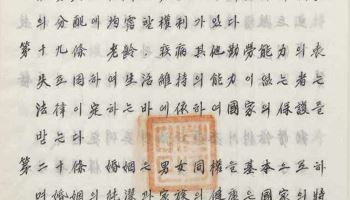 의 分配에 均霑할 權利가 있다
第十九條 老齡, 疾病 其他 勤勞能力의 喪
失로 因하여 生活維持의 能力이 없는 者는
法律이 定하는 바에 依하여 國家의 保護를
받는다
第二十條 婚姻은 男女同權을 基本으로 하
며 婚姻의 純潔과 家族의 健康은 國家의 特